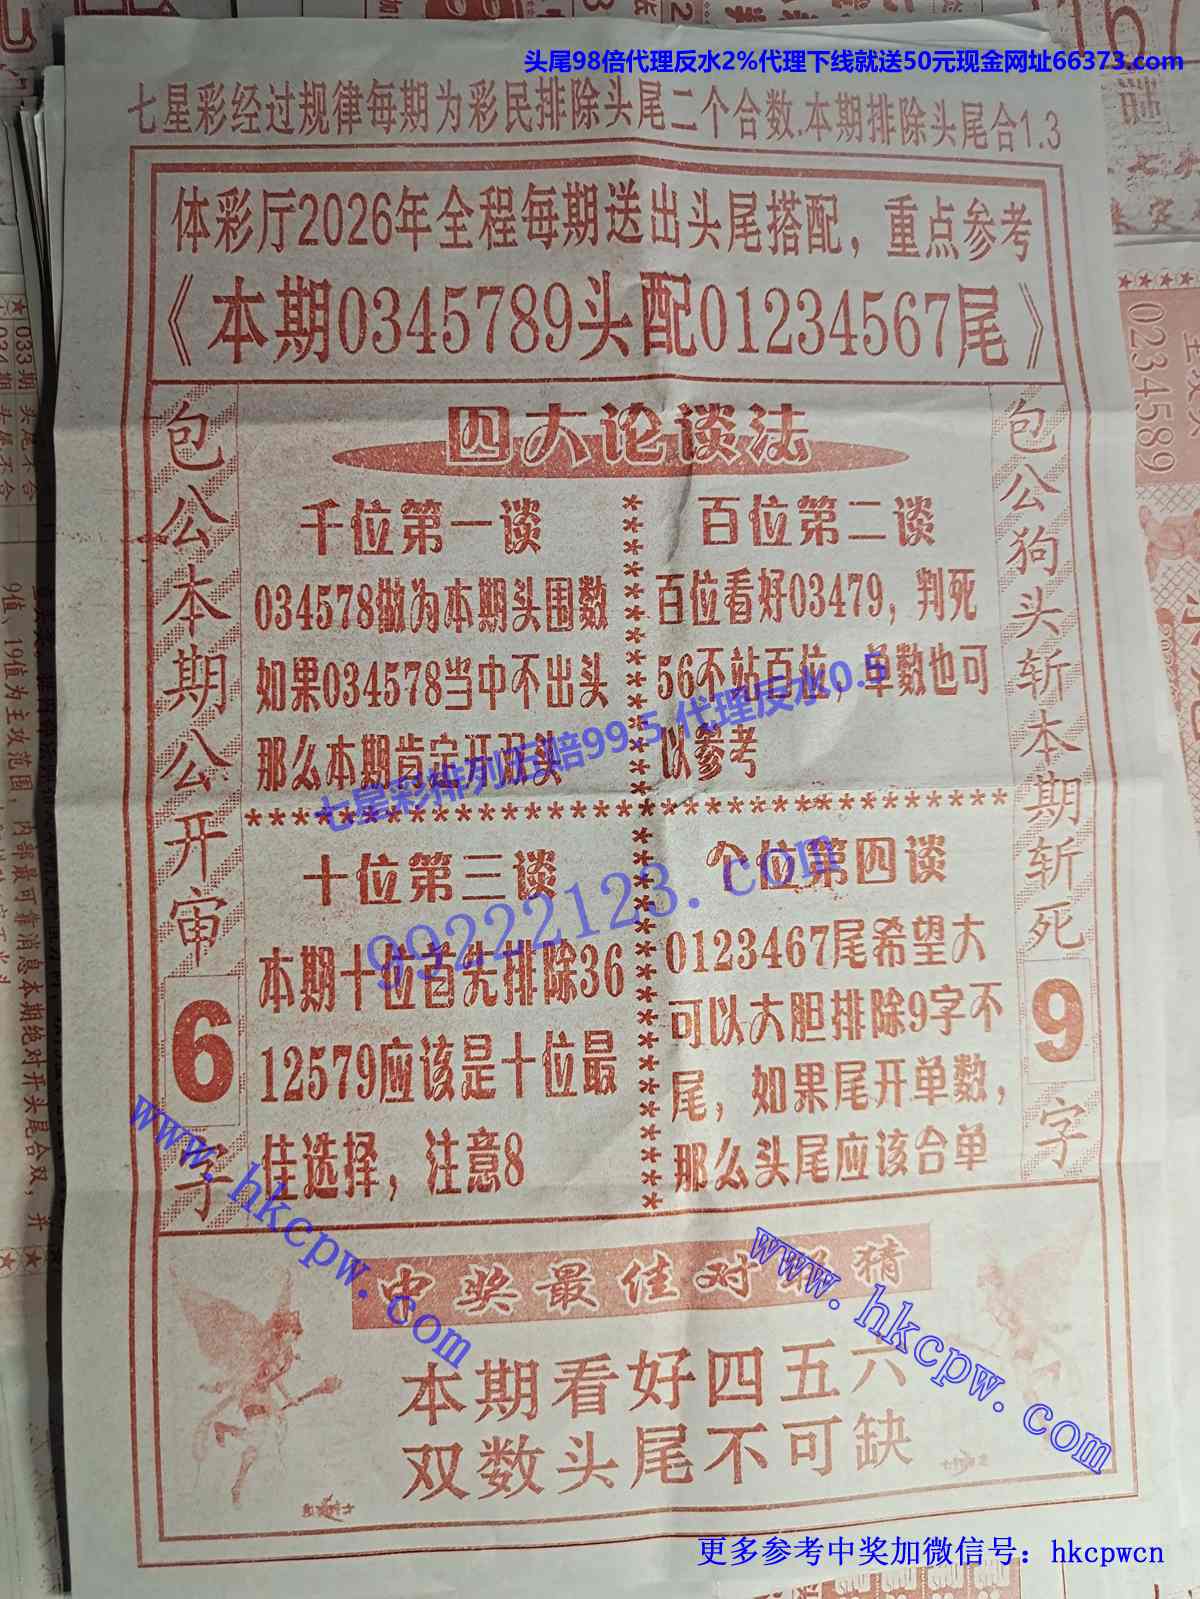 头尾98倍代理反水2%代理下线就送50元现金网址66373.com
七星彩经过规律每期为彩民排除头尾二个合数.本期排除头尾合1.3
体彩厅2026年全程每期送出头尾搭配，重点参考
《本期0345789头配01234567尾》
四大论谈法
包公本期公开审6字
千位第一谈
034578做为本期头围数
如果034578当中不出头
那么本期肯定开双头
百位第二谈
百位看好03479，判死
56不站百位，单数也可
以参考
包公狗头斩本期斩死9字
七星彩排列五赔99.5代理反水0.5
十位第三谈
本期十位首先排除36
12579应该是十位最
佳选择，注意8
个位第四谈
0123467尾希望大
可以大胆排除9字不
尾，如果尾开单数，
那么头尾应该合单
99222123.com
www.hkcpw.com
www.hkcpw.com
中奖最佳对 猜
本期看好四五六
双数头尾不可缺
更多参考中奖加微信号：hkcpwcn
0234589
033期 头尾不合
034期 头尾不合
9值、19值为主攻范围，内部最可靠消息本期绝对开头尾合双，开